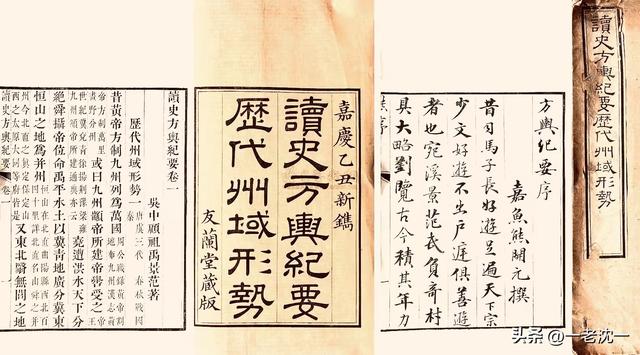 讀史方輿紀要歷代州域形勢
方輿紀要序
嘉魚熊開元撰
昔司馬子長好遊足遍天下宗
少文好遊不出戶庭俱善遊
者也宛溪景范氏負奇村
具大略劉覽古今積其年力
嘉慶乙丑新鐫
讀史方輿紀要
歷代州域形勢
友蘭堂藏版
讀史方輿紀要卷一
吳中顧祖禹景范著
歷代州域形勢一 唐虞三代 春秋戰國 秦
昔黃帝方制九州列為萬國
或曰九州顓帝所建帝嚳受之
堯遭洪水天下分
絕舜攝帝位命禹平水土以冀青地廣分冀東
恒山之地為并州
又東北醫無閭之地
讀史方輿紀要卷一
头条 @一老沈一